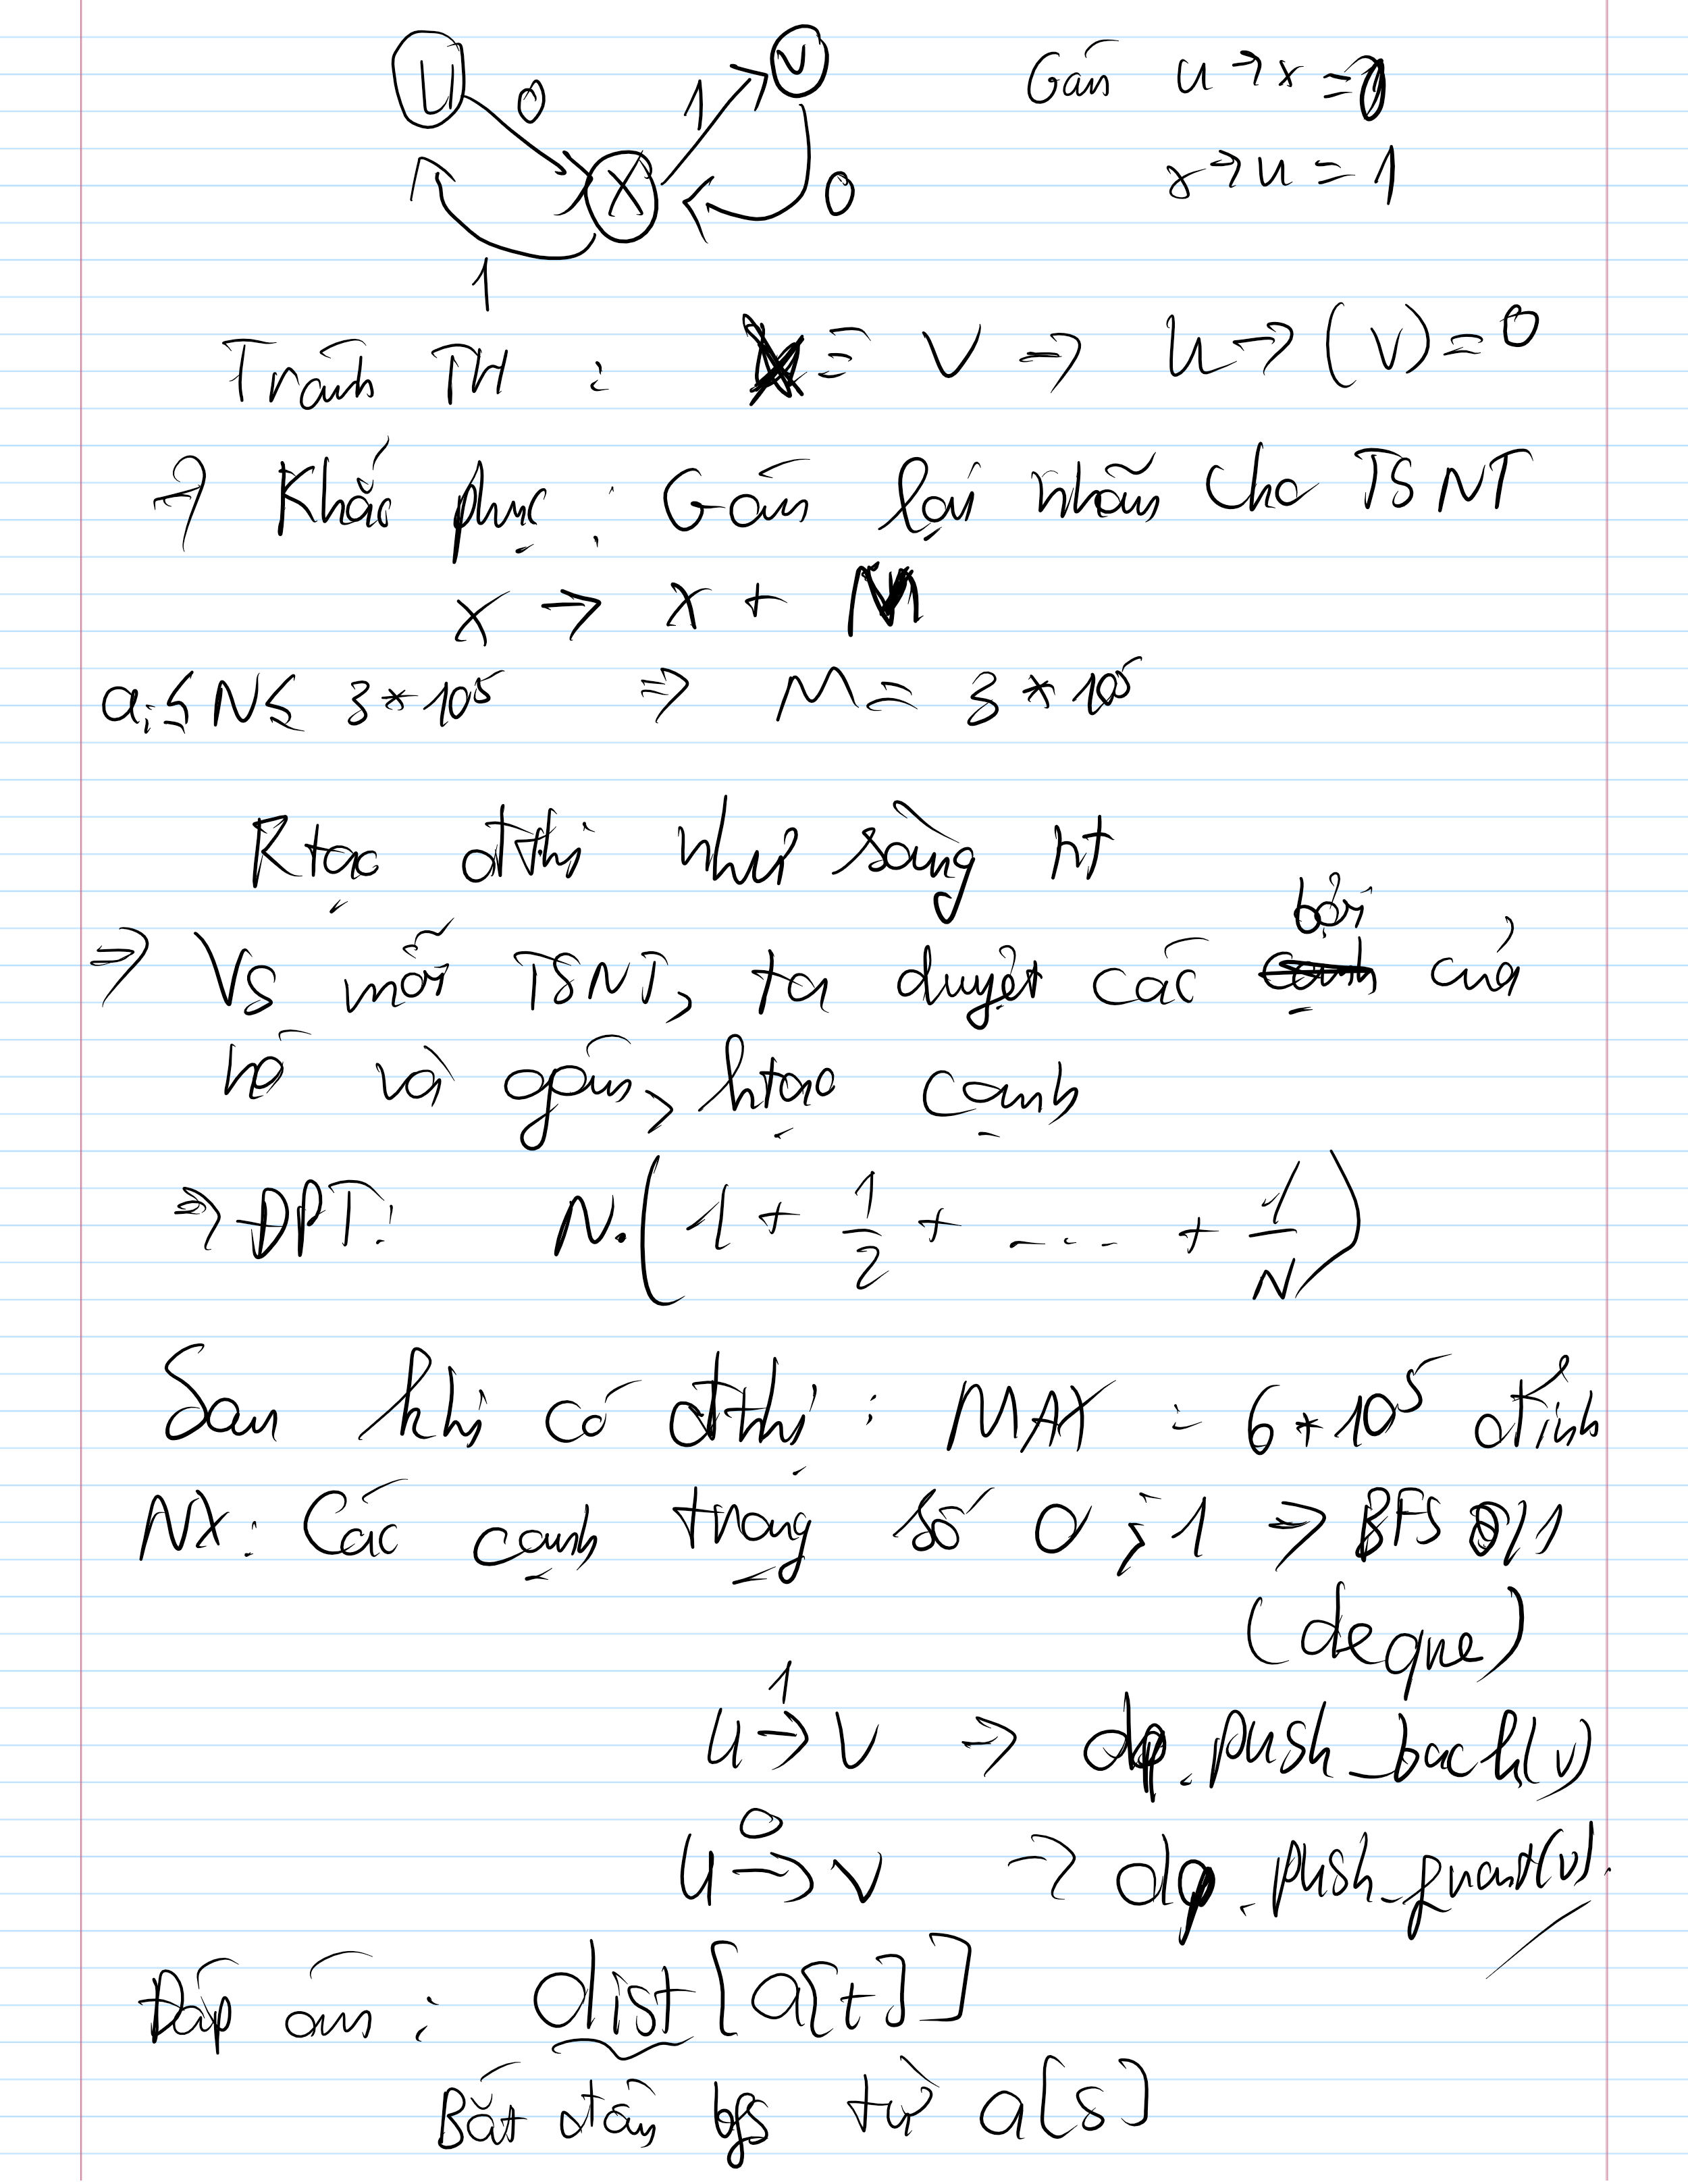 U 0 1 V Gán u → x = 0
X 0 x → u = 1
1
Tránh TH : x = v ⇒ u → (v) = 0
⇒ Khắc phục : Gán lại nhãn cho TSNT
x → x + M
aᵢ ≤ N ≤ 3 * 10⁵ ⇒ M = 3 * 10⁵
Ktạo đthị như sàng nt
bội
⇒ Vs mỗi TSNT, ta duyệt các của
nó và gán, ktạo cạnh
⇒ ĐPT: N.(1 + 1/2 + .... + 1/N)
Sau khi có đthị : MAX = 6 * 10⁵ đỉnh
NX: Các cạnh trọng số 0 ; 1 ⇒ BFS 0/1
(deque)
1
u → v ⇒ dq.push_back(v)
0
u → v ⇒ dq.push_front(v).
Đáp án : dist[a[t]]
Bắt đầu bfs từ a[s]